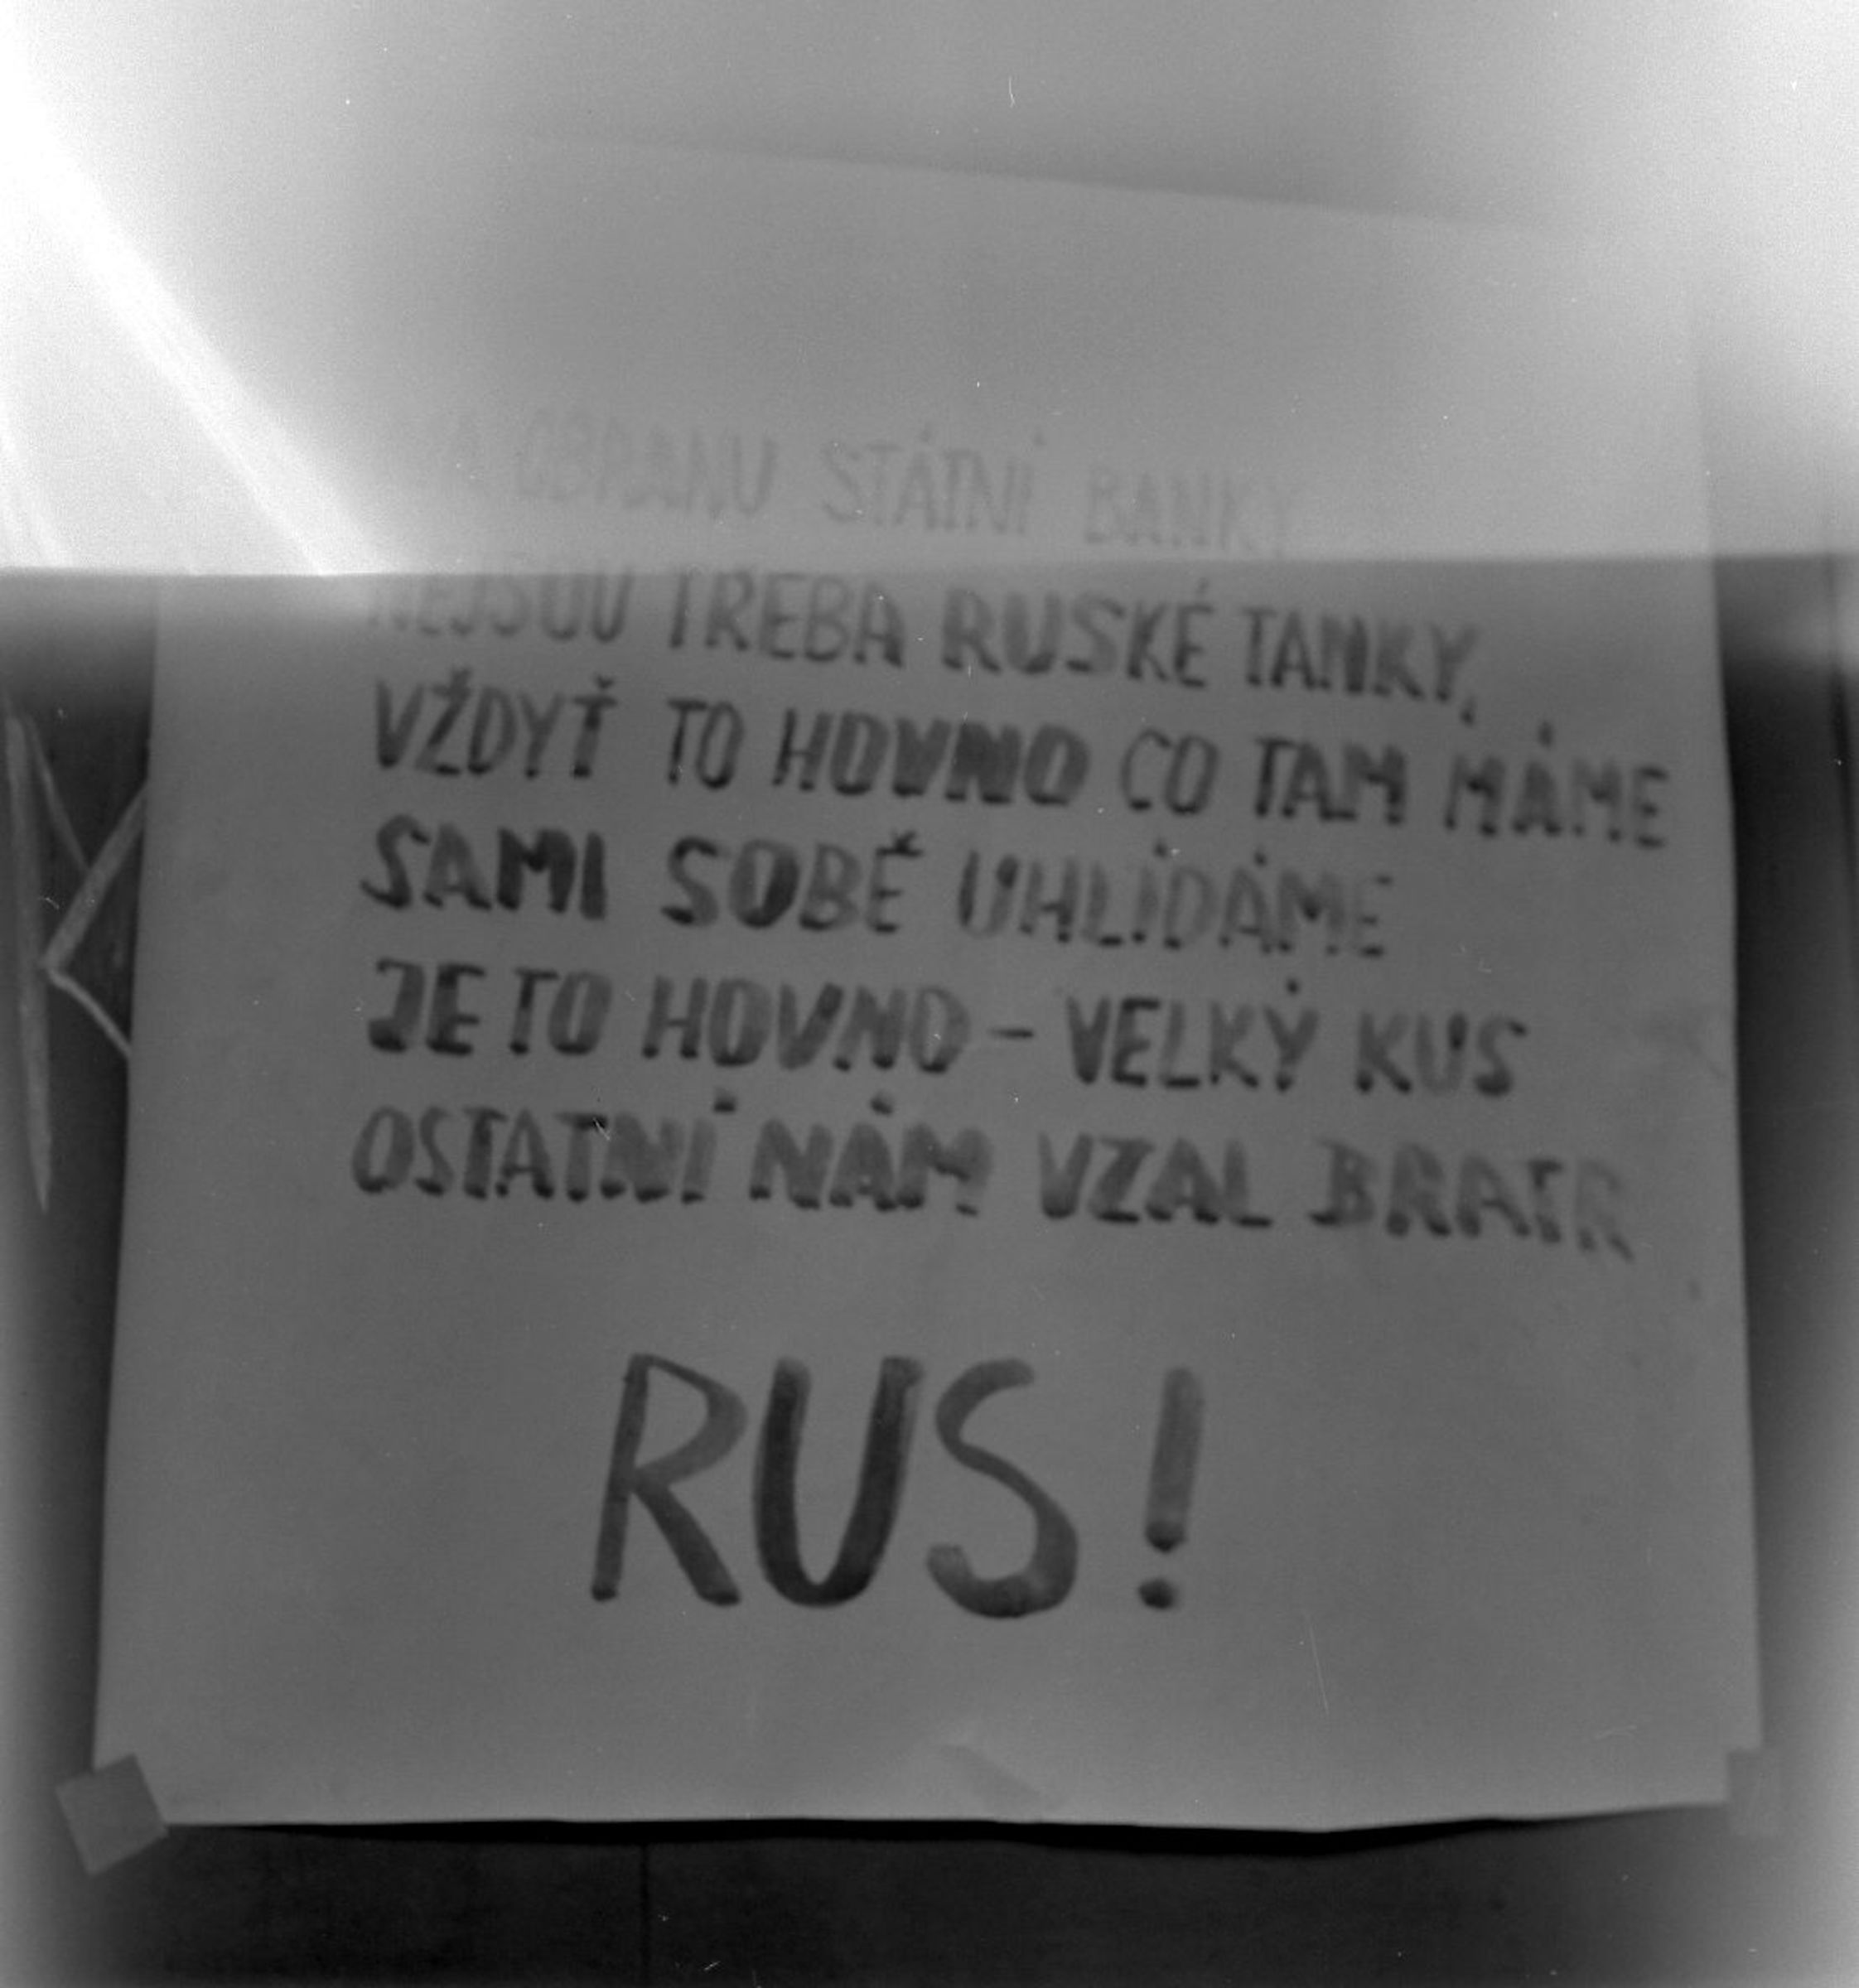 OBRANU STÁTNÍ BANKY
NEJSOU TŘEBA RUSKÉ TANKY,
VŽDYŤ TO HOVNO CO TAM MÁME
SAMI SOBĚ UHLÍDÁME
JE TO HOVNO - VELKÝ KUS
OSTATNÍ NÁM VZAL BRATR
RUS!